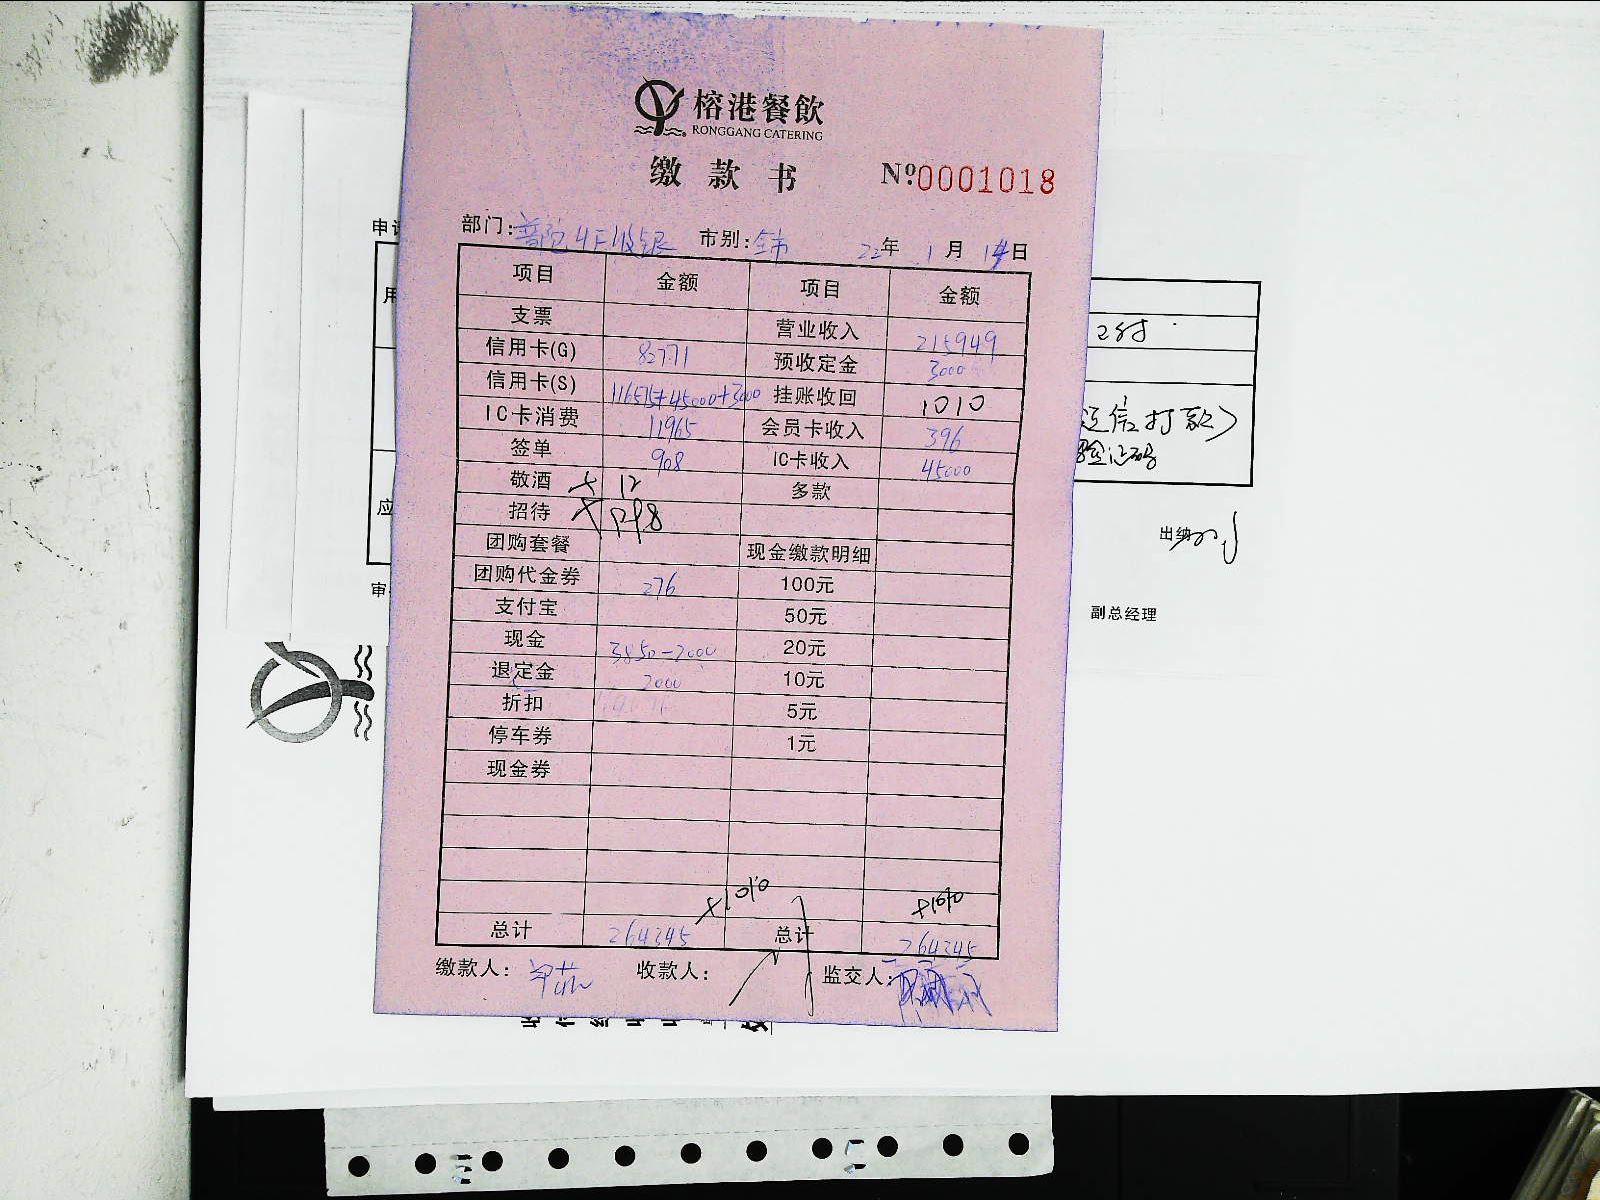 榕港餐飲
RONGGANG CATERING
缴款书 Nº:0001018
部门:普陀4F收银 市别:全市 22年1月14日
项目 金额 项目 金额
支票 营业收入 215949
信用卡(G) 82771 预收定金 3000
信用卡(S) 116515+45000+3000 挂账收回 1010
IC卡消费 11965 会员卡收入 396
签单 908 IC卡收入 45000
敬酒 多款
招待
团购套餐 现金缴款明细
团购代金券 276 100元
支付宝 50元
现金 3850-2000 20元
退定金 2000 10元
折扣 5元
停车券 1元
现金券
+1010 +1010
总计 264345 总计 264345
缴款人: 收款人: 监交人:
申
用
应
审
打款)
验证码
出纳
副总经理